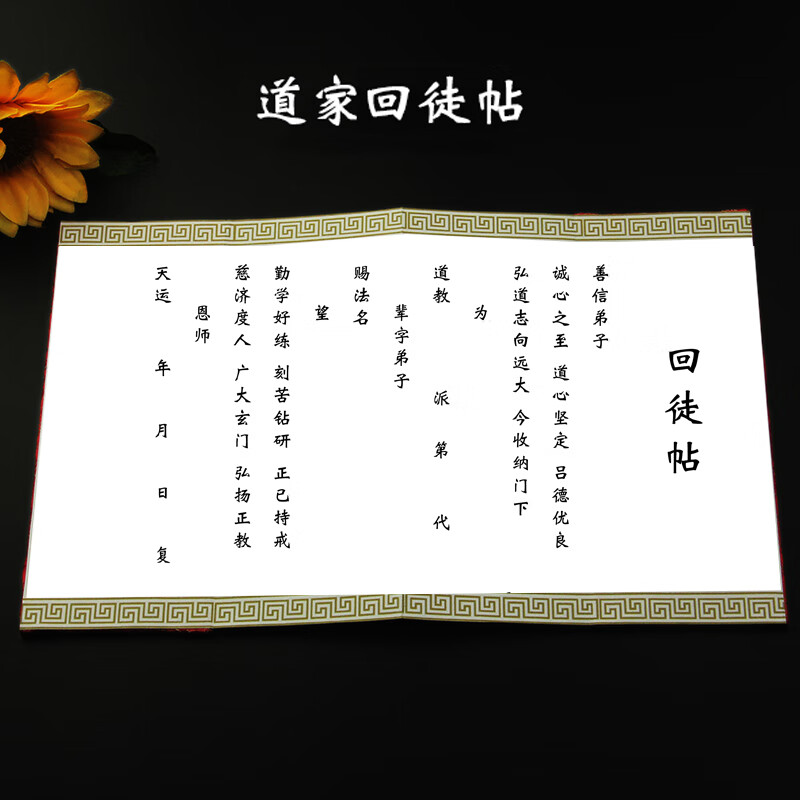 道家回徒帖
回徒帖
善信弟子
诚心之至 道心坚定 吕德优良
弘道志向远大 今收纳门下
为
道教 派 第 代
辈字弟子
赐法名
望
勤学好练 刻苦钻研 正已持戒
慈济度人 广大玄门 弘扬正教
恩师
天运 年 月 日 复